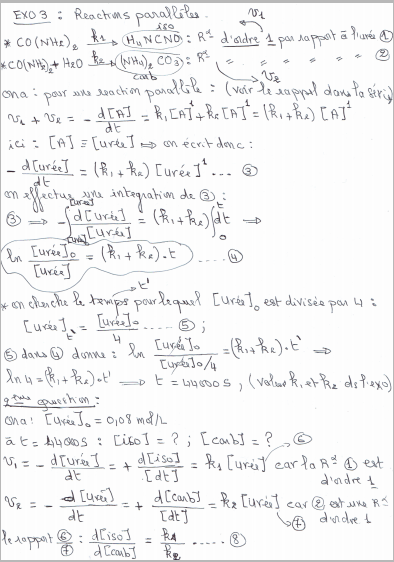 EXO 3 : Reactions parallèles. v1
iso
* CO(NH2)2 k1→ H4NCNO : R× d'ordre 1 par rapport à l'urée ①
* CO(NH2)2 + H2O k2→ (NH4)2CO3 : R× " " " " " ②
carb v2
on a : pour une reaction parallèle : (voir le rappel dans la série)
v1 + v2 = - d[A]/dt = k1[A]^1 + k2[A]^1 = (k1+k2)[A]^1
ici : [A] ≡ [urée] ⟹ on écrit donc :
- d[urée]/dt = (k1+k2) [urée]^1 ... ③
on effectue une integration de ③ :
③ ⟹ -∫[urée]0[urée] d[urée]/[urée] = (k1+k2) ∫0t dt ⟹
ln [urée]0/[urée] = (k1+k2).t ..... ④
t'
* on cherche le temps pour lequel [urée]0 est divisée par 4 :
[urée]t' = [urée]0/4 ..... ⑤ ;
⑤ dans ④ donne : ln [urée]0/[urée]0/4 = (k1+k2).t' ⟹
ln 4 = (k1+k2).t' ⟹ t = 44000 s, (valeur k1 et k2 ds l'exo)
2eme question :
on a : [urée]0 = 0,08 mol/L
à t = 44000 s : [iso] = ? ; [carb] = ? ⑥
v1 = - d[urée]/dt = + d[iso]/[dt] = k1[urée] car la R× ① est d'ordre 1
v2 = - d[urée]/dt = + d[carb]/[dt] = k2[urée] car ② est une R× d'ordre 1
⑦
le rapport ⑥/⑦ : d[iso]/d[carb] = k1/k2 ..... ⑧